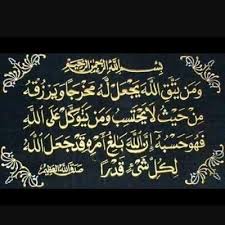 بِسْمِ اللَّهِ الرَّحْمَٰنِ الرَّحِيمِ
وَمَن يَتَّقِ اللَّهَ يَجْعَل لَّهُ مَخْرَجًا وَيَرْزُقْهُ
مِنْ حَيْثُ لَا يَحْتَسِبُ وَمَن يَتَوَكَّلْ عَلَى اللَّهِ
فَهُوَ حَسْبُهُ إِنَّ اللَّهَ بَالِغُ أَمْرِهِ قَدْ جَعَلَ اللَّهُ
لِكُلِّ شَيْءٍ قَدْرًا
صَدَقَ اللَّهُ الْعَظِيمُ